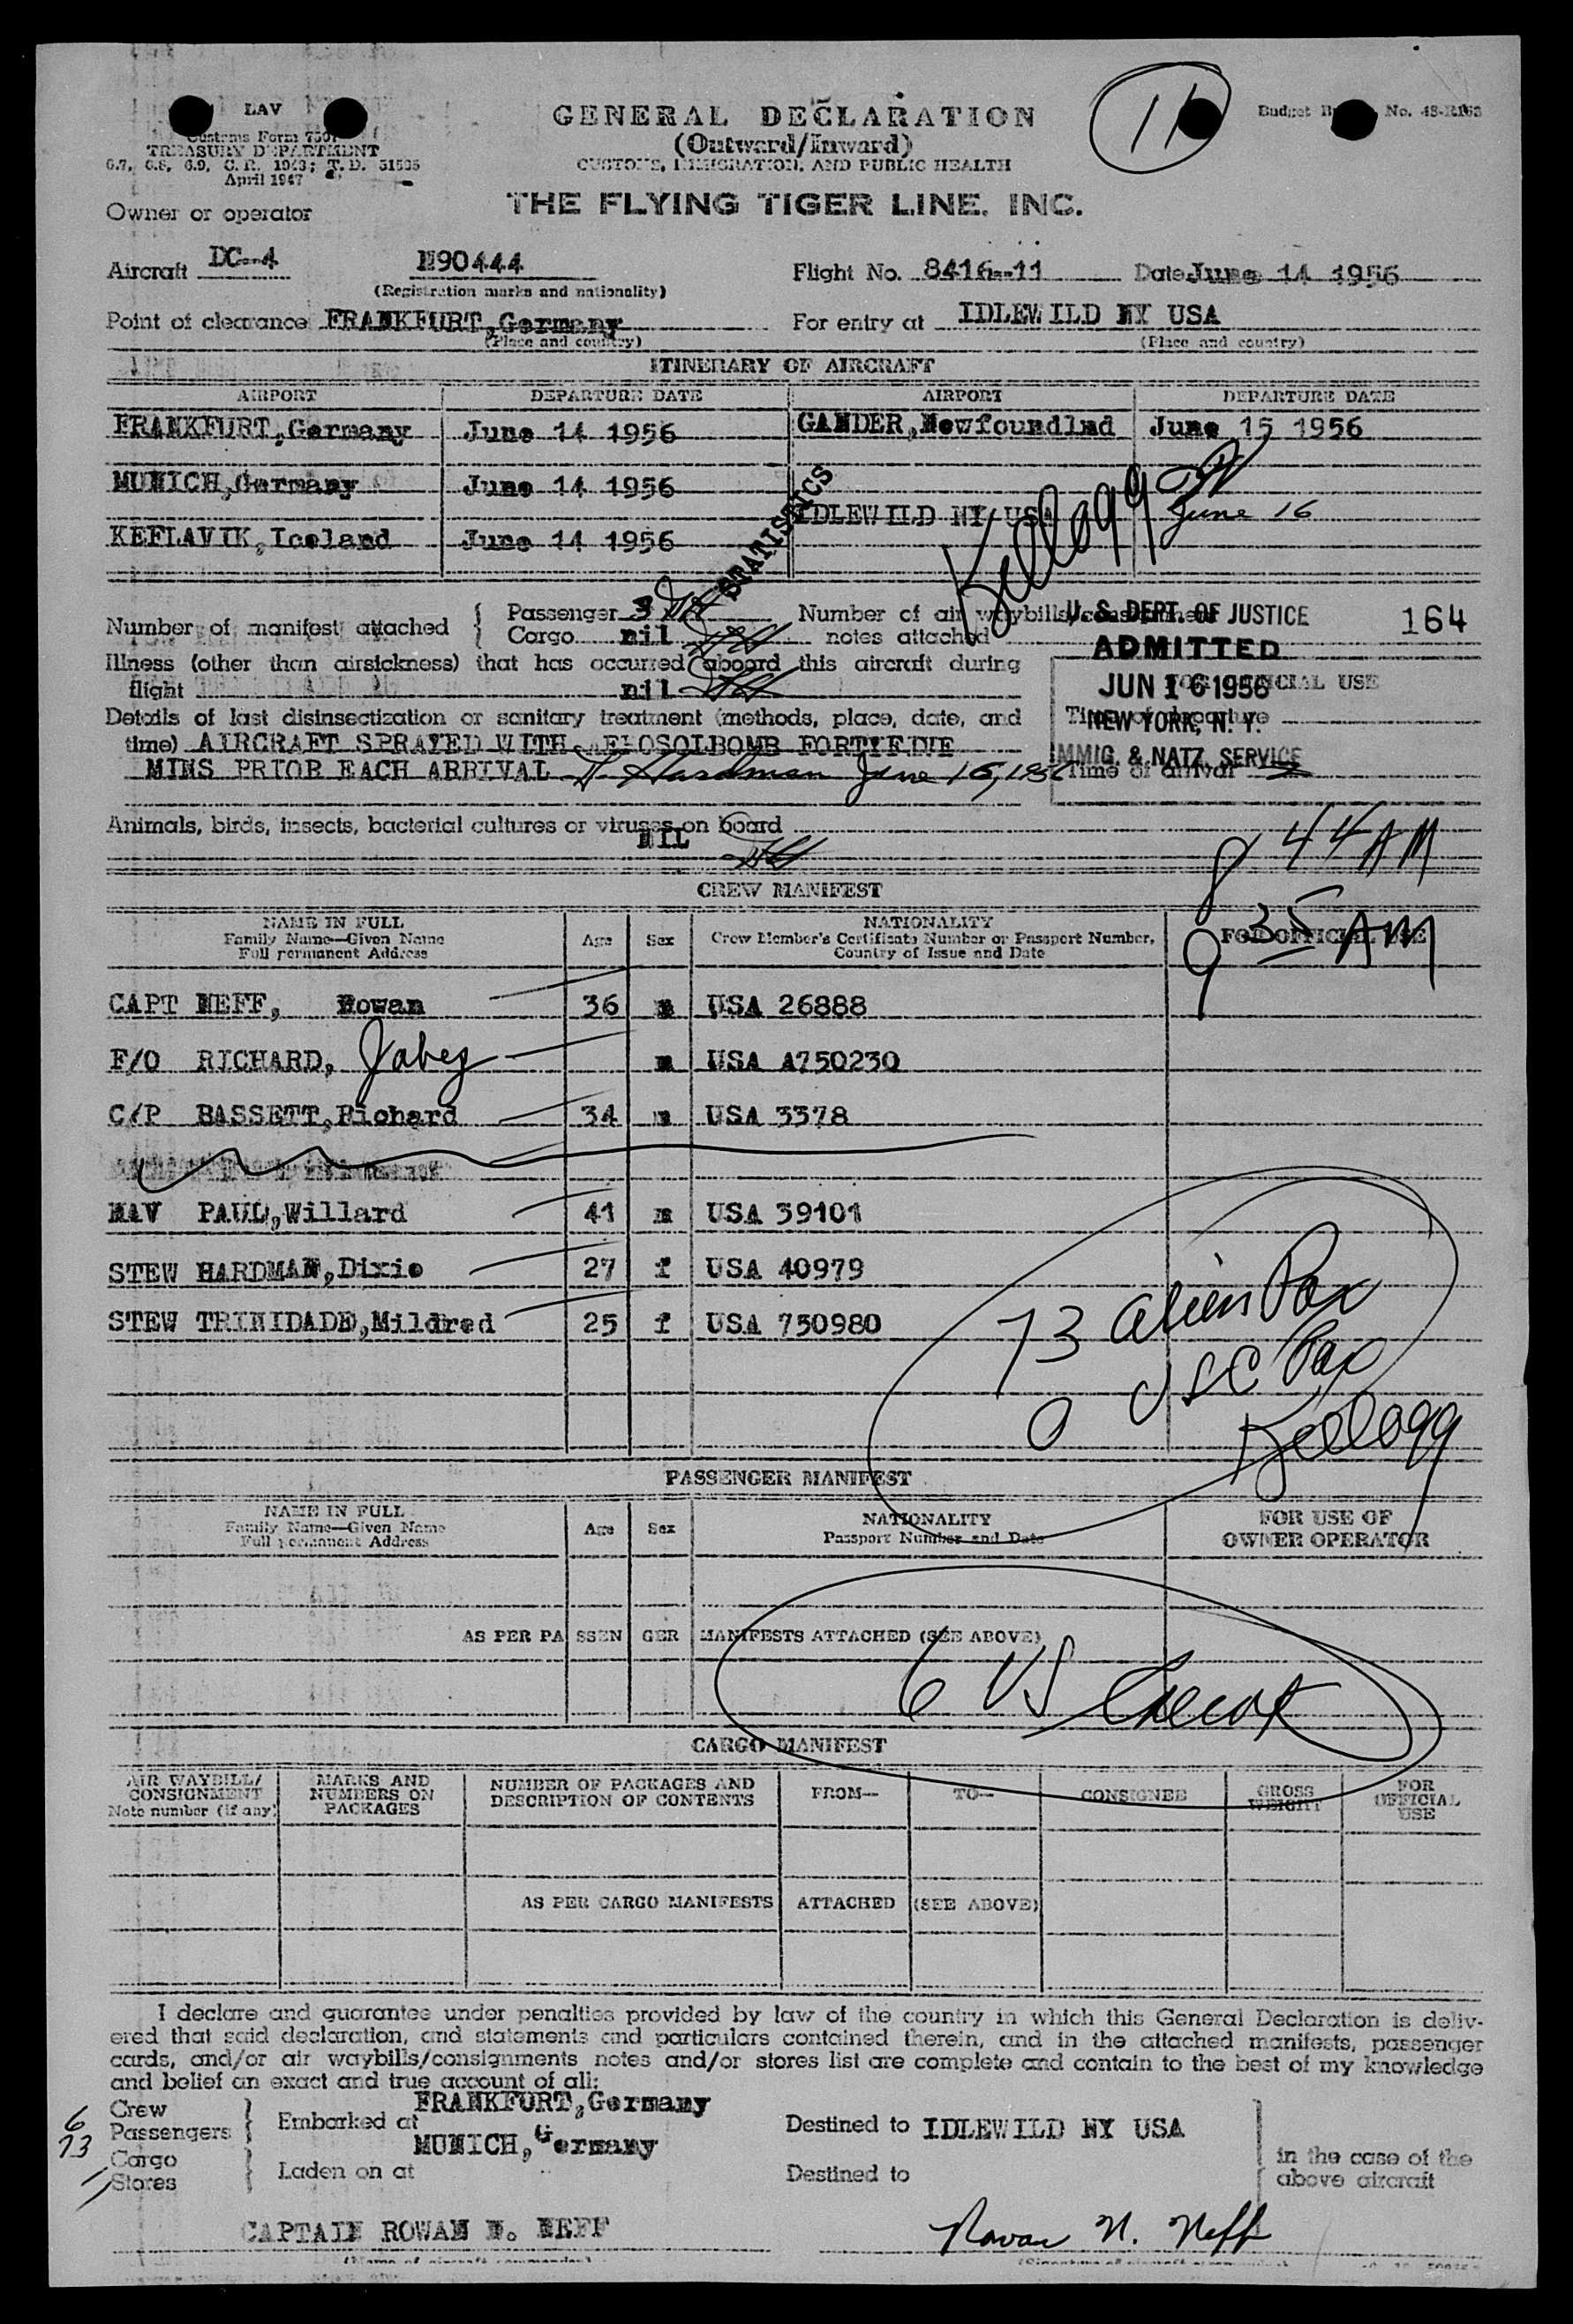 LAV
Customs Form 7507
TREASURY DEPARTMENT
6.7, 6.8, 6.9, C. R. 1943; T. D. 51535
April 1947
GENERAL DECLARATION
(Outward/Inward)
CUSTOMS, IMMIGRATION, AND PUBLIC HEALTH
11
Budget No. 48-R163
THE FLYING TIGER LINE. INC.
Owner or operator
Aircraft DC-4 N90444 Flight No. 8416-11 Date June 14 1956
(Registration marks and nationality)
Point of clearance FRANKFURT,Germany For entry at IDLEWILD NY USA
(Place and country) (Place and country)
ITINERARY OF AIRCRAFT
AIRPORT DEPARTURE DATE AIRPORT DEPARTURE DATE
FRANKFURT,Germany June 14 1956 GANDER,Newfoundlnd June 15 1956
MUNICH,Germany June 14 1956
IDLEWILD NY USA June 16
KEFLAVIK,Iceland June 14 1956
STATISTICS
Kellogg
Number of manifest attached
Passenger 3
Cargo nil
Number of air waybills/consignment notes attached
U. S. DEPT. OF JUSTICE
ADMITTED
JUN 16 1956
NEW YORK, N. Y.
IMMIG. & NATZ. SERVICE
164
Illness (other than airsickness) that has occurred aboard this aircraft during
flight nil
FOR OFFICIAL USE
Details of last disinsectization or sanitary treatment (methods, place, date, and
Time of departure
time) AIRCRAFT SPRAYED WITH AEROSOLBOMB FORTYFIVE
MINS PRIOR EACH ARRIVAL D. Hardman June 16, 1956
Time of arrival
Animals, birds, insects, bacterial cultures or viruses on board
NIL
8 44 AM
9 35 AM
CREW MANIFEST
NAME IN FULL
Family Name—Given Name
Full permanent Address
Age Sex
NATIONALITY
Crew Member's Certificate Number or Passport Number,
Country of Issue and Date
FOR OFFICIAL USE
CAPT NEFF, Rowan 36 m USA 26888
F/O RICHARD, Jabez m USA A750230
C/P BASSETT,Richard 34 m USA 3378
NAV PAUL,Willard 41 m USA 39101
STEW HARDMAN,Dixie 27 f USA 40979
STEW TRINIDADE,Mildred 25 f USA 750980
73 alien Pax
0 USC Pax
Kellogg
PASSENGER MANIFEST
NAME IN FULL
Family Name—Given Name
Full permanent Address
Age Sex
NATIONALITY
Passport Number and Date
FOR USE OF
OWNER OPERATOR
AS PER PA SSEN GER MANIFESTS ATTACHED (SEE ABOVE)
6 US
CARGO MANIFEST
AIR WAYBILL/
CONSIGNMENT
Note number (if any)
MARKS AND
NUMBERS ON
PACKAGES
NUMBER OF PACKAGES AND
DESCRIPTION OF CONTENTS
FROM—
TO—
CONSIGNEE
GROSS
WEIGHT
FOR
OFFICIAL
USE
AS PER CARGO MANIFESTS ATTACHED (SEE ABOVE)
I declare and guarantee under penalties provided by law of the country in which this General Declaration is deliv-
ered that said declaration, and statements and particulars contained therein, and in the attached manifests, passenger
cards, and/or air waybills/consignments notes and/or stores list are complete and contain to the best of my knowledge
and belief an exact and true account of all:
6 Crew
73 Passengers
Embarked at FRANKFURT,Germany
MUNICH,Germany
Destined to IDLEWILD NY USA
Cargo
Stores
Laden on at
Destined to
in the case of the
above aircraft
CAPTAIN ROWAN N. NEFF
Rowan N. Neff
(Name of aircraft commander)